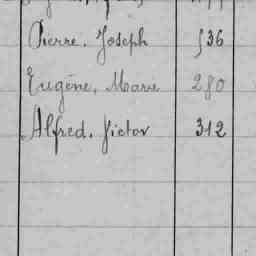 Pierre, Joseph 536
Eugène, Marie 280
Alfred, Victor 312